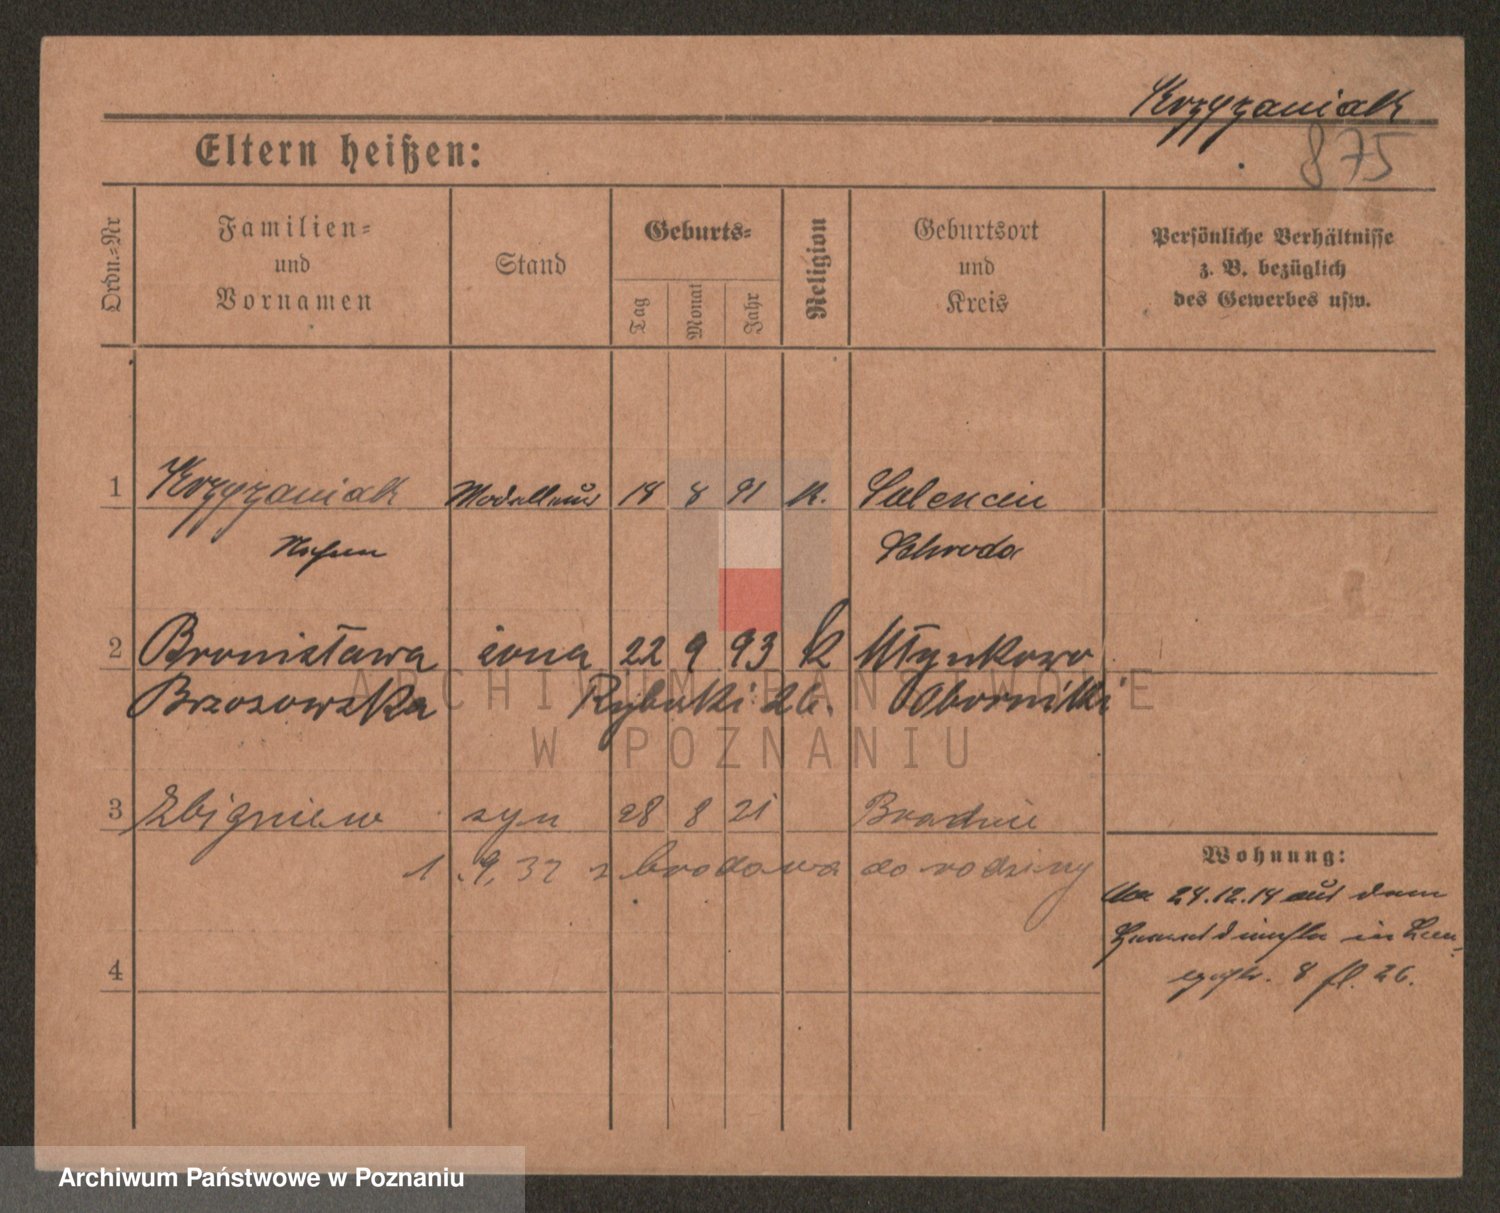 Krzyżaniak
875
Eltern heißen:
Ordn.=Nr
Familien=
und
Vornamen
Stand
Geburts=
Tag
Monat
Jahr
Religion
Geburtsort
und
Kreis
Persönliche Verhältnisse
z. B. bezüglich
des Gewerbes usw.
1 Krzyżaniak Modelleur 18 8 91 K.
Schroda
2 Bronisława żona 22 9 93 k Młynkowo
Brzozowska Rybaki 26. Oborniki
3 Zbigniew syn 28 8 21
1.9.32 z do rodziny
4
Wohnung:
24.12.14 aus dem
in
8 26.
ARCHIWUM PAŃSTWOWE
W POZNANIU
Archiwum Państwowe w Poznaniu